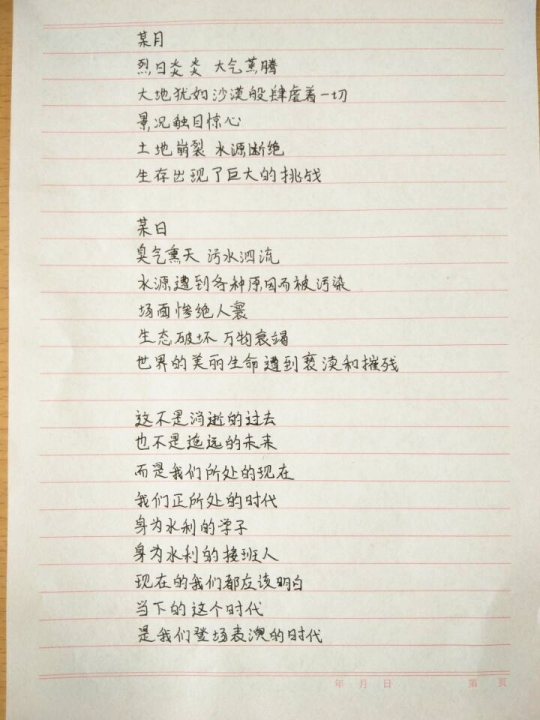 某月
烈日炎炎 大气熏腾
大地犹如沙漠般肆虐着一切
景况触目惊心
土地崩裂 水源断绝
生存出现了巨大的挑战
某日
臭气熏天 污水泗流
水源遭到各种原因而被污染
场面惨绝人寰
生态破坏 万物衰竭
世界的美丽生命遭到亵渎和摧残
这不是消逝的过去
也不是遥远的未来
而是我们所处的现在
我们正所处的时代
身为水利的学子
身为水利的接班人
现在的我们都应该明白
当下的这个时代
是我们登场表演的时代
年 月 日 第 页